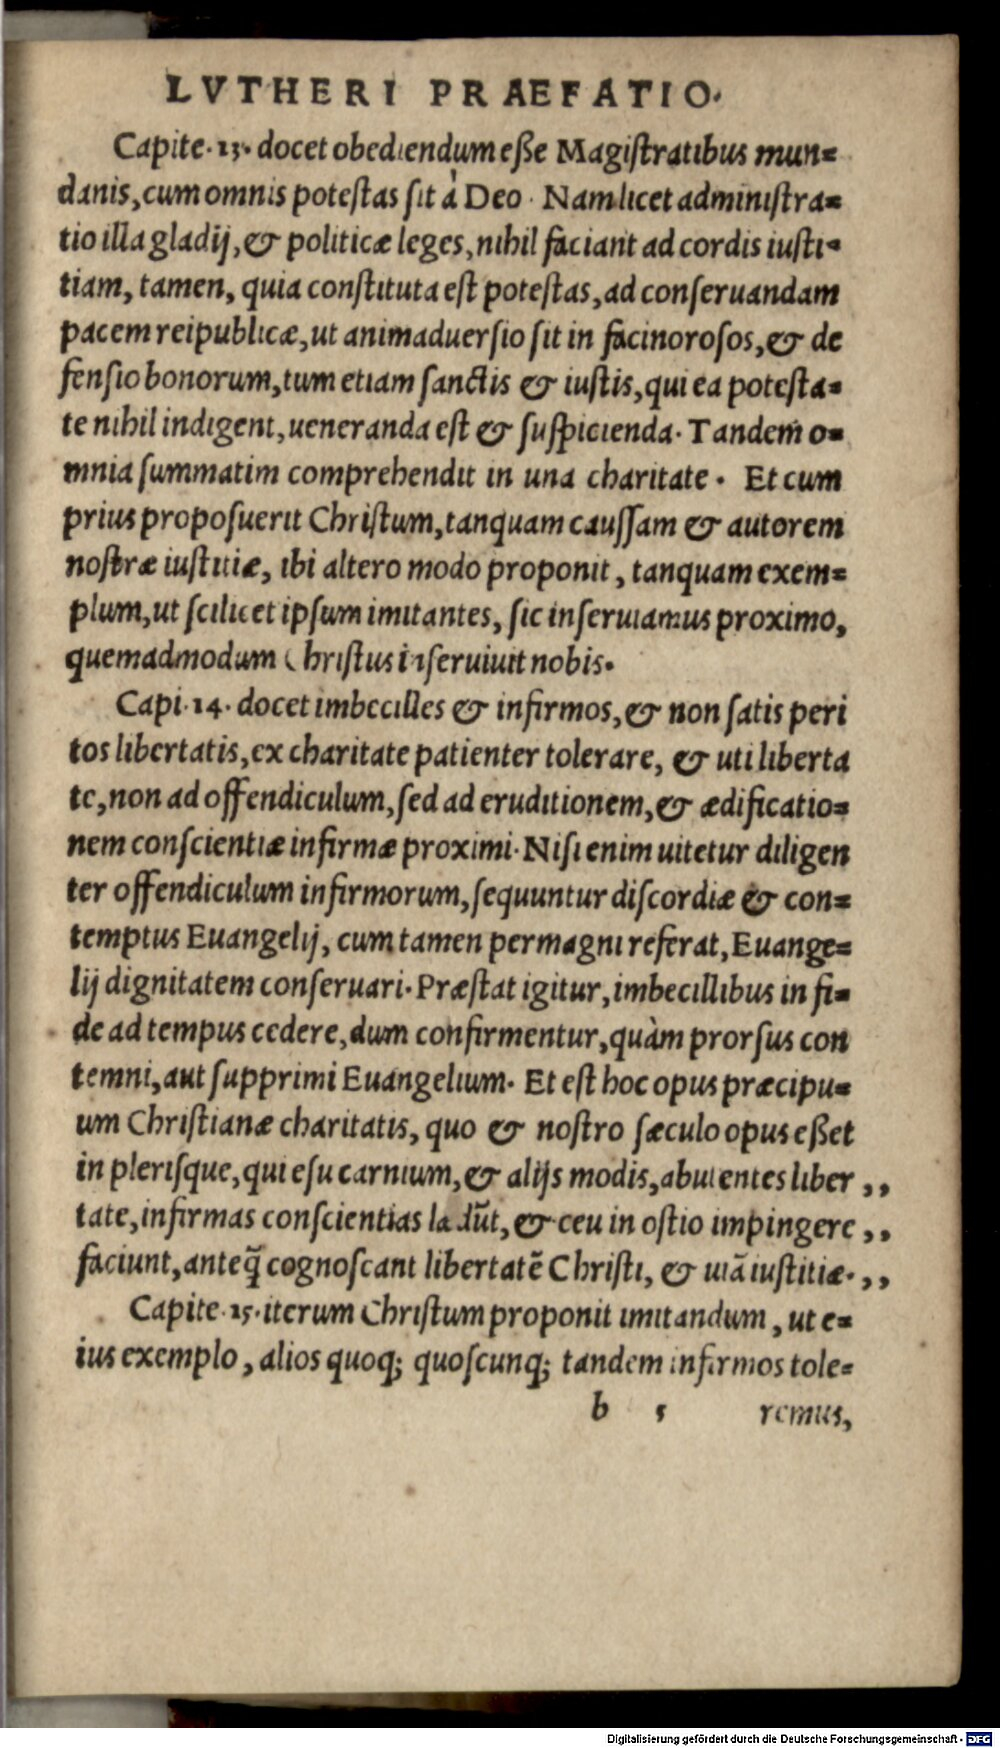 LVTHERI PRAEFATIO.
Capite. 13. docet obediendum eße Magiſtratibus mun=
danis, cum omnis poteſtas ſit à Deo. Nam licet adminiſtra=
tio illa gladij, & politicæ leges, nihil faciant ad cordis iuſti=
tiam, tamen, quia conſtituta eſt poteſtas, ad conſeruandam
pacem reipublicæ, ut animaduerſio ſit in facinoroſos, & de
fenſio bonorum, tum etiam ſanctis & iuſtis, qui ea poteſta=
te nihil indigent, ueneranda eſt & ſuſpicienda. Tandem o=
mnia ſummatim comprehendit in una charitate. Et cum
prius propoſuerit Chriſtum, tanquam cauſſam & autorem
noſtræ iuſtitiæ, ibi altero modo proponit, tanquam exem=
plum, ut ſcilicet ipſum imitantes, ſic inſeruiamus proximo,
quemadmodum Chriſtus inſeruiuit nobis.
Capi. 14. docet imbecilles & infirmos, & non ſatis peri
tos libertatis, ex charitate patienter tolerare, & uti liberta
te, non ad offendiculum, ſed ad eruditionem, & ædificatio=
nem conſcientiæ infirmæ proximi. Niſi enim uitetur diligen
ter offendiculum infirmorum, ſequuntur diſcordiæ & con=
temptus Euangelij, cum tamen permagni referat, Euange=
lij dignitatem conſeruari. Præſtat igitur, imbecillibus in fi=
de ad tempus cedere, dum confirmentur, quàm prorſus con
temni, aut ſupprimi Euangelium. Et eſt hoc opus præcipu=
um Chriſtianæ charitatis, quo & noſtro ſæculo opus eßet
in pleriſque, qui eſu carnium, & alijs modis, abutentes liber ,,
tate, infirmas conſcientias lædūt, & ceu in oſtio impingere ,,
faciunt, anteq̃ cognoſcant libertatē Chriſti, & uiā iuſtitiæ. ,,
Capite. 15. iterum Chriſtum proponit imitandum, ut e=
ius exemplo, alios quoq; quoſcunq; tandem infirmos tole=
b 5 remus,
Digitalisierung gefördert durch die Deutsche Forschungsgemeinschaft - DFG